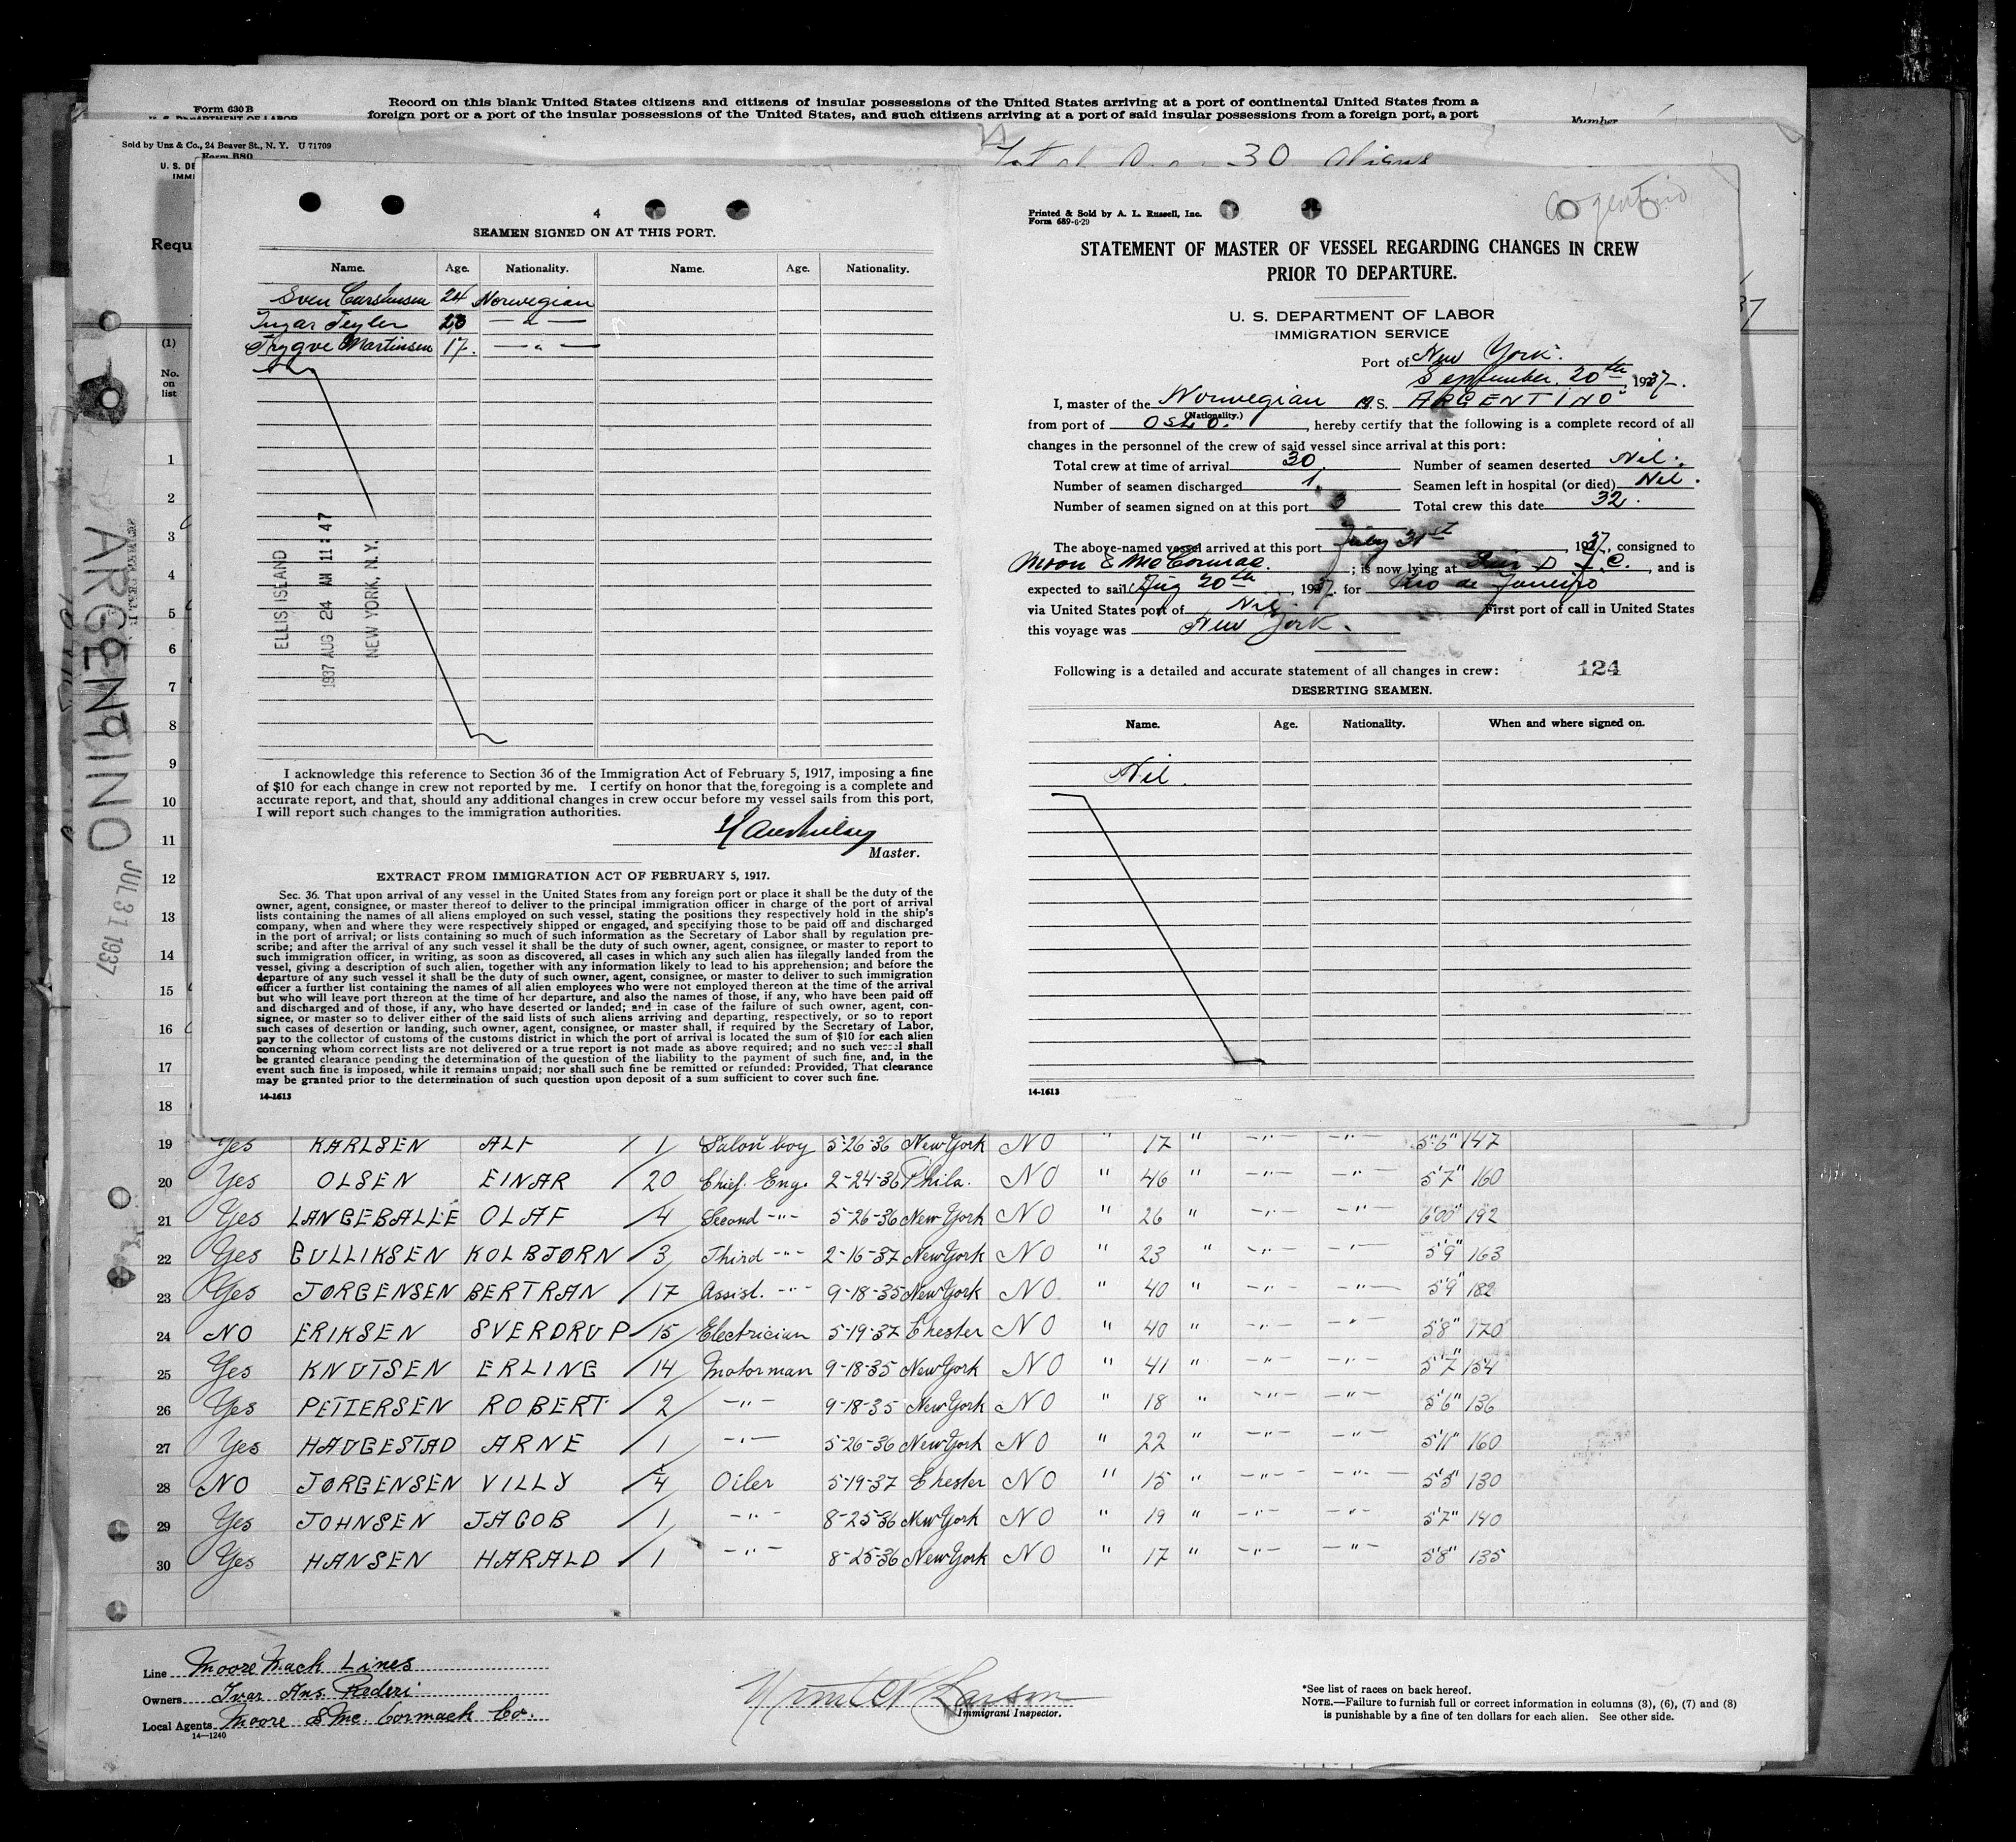 Form 630 B
U. S. DEPARTMENT OF LABOR
Record on this blank United States citizens and citizens of insular possessions of the United States arriving at a port of continental United States from a
foreign port or a port of the insular possessions of the United States, and such citizens arriving at a port of said insular possessions from a foreign port, a port
Number
Sold by Unz & Co., 24 Beaver St., N. Y. U 71709
Form 680
U. S. DE
IMMI
30 aliens
Requ
(1)
No.
on
list
ARGENTINO
JUL 31 1937
4
SEAMEN SIGNED ON AT THIS PORT.
Name. Age. Nationality. Name. Age. Nationality.
Sven Carstensen 24 Norwegian
Ingar Teyler 23 —"—
Trygve Martinsen 17. —"—
ELLIS ISLAND
1937 AUG 24 AM 11:47
NEW YORK, N.Y.
I acknowledge this reference to Section 36 of the Immigration Act of February 5, 1917, imposing a fine
of $10 for each change in crew not reported by me. I certify on honor that the foregoing is a complete and
accurate report, and that, should any additional changes in crew occur before my vessel sails from this port,
I will report such changes to the immigration authorities.
Master.
EXTRACT FROM IMMIGRATION ACT OF FEBRUARY 5, 1917.
Sec. 36. That upon arrival of any vessel in the United States from any foreign port or place it shall be the duty of the
owner, agent, consignee, or master thereof to deliver to the principal immigration officer in charge of the port of arrival
lists containing the names of all aliens employed on such vessel, stating the positions they respectively hold in the ship's
company, when and where they were respectively shipped or engaged, and specifying those to be paid off and discharged
in the port of arrival; or lists containing so much of such information as the Secretary of Labor shall by regulation pre-
scribe; and after the arrival of any such vessel it shall be the duty of such owner, agent, consignee, or master to report to
such immigration officer, in writing, as soon as discovered, all cases in which any such alien has illegally landed from the
vessel, giving a description of such alien, together with any information likely to lead to his apprehension; and before the
departure of any such vessel it shall be the duty of such owner, agent, consignee, or master to deliver to such immigration
officer a further list containing the names of all alien employees who were not employed thereon at the time of the arrival
but who will leave port thereon at the time of her departure, and also the names of those, if any, who have been paid off
and discharged and of those, if any, who have deserted or landed; and in case of the failure of such owner, agent, con-
signee, or master so to deliver either of the said lists of such aliens arriving and departing, respectively, or so to report
such cases of desertion or landing, such owner, agent, consignee, or master shall, if required by the Secretary of Labor,
pay to the collector of customs of the customs district in which the port of arrival is located the sum of $10 for each alien
concerning whom correct lists are not delivered or a true report is not made as above required; and no such vessel shall
be granted clearance pending the determination of the question of the liability to the payment of such fine, and, in the
event such fine is imposed, while it remains unpaid; nor shall such fine be remitted or refunded: Provided, That clearance
may be granted prior to the determination of such question upon deposit of a sum sufficient to cover such fine.
14-1613
Argentino
Printed & Sold by A. L. Russell, Inc.
Form 689-6-29
STATEMENT OF MASTER OF VESSEL REGARDING CHANGES IN CREW
PRIOR TO DEPARTURE.
U. S. DEPARTMENT OF LABOR
IMMIGRATION SERVICE
Port of New York.
September. 20th, 1937.
I, master of the Norwegian M.S. ARGENTINO
(Nationality.)
from port of Oslo., hereby certify that the following is a complete record of all
changes in the personnel of the crew of said vessel since arrival at this port:
Total crew at time of arrival 30. Number of seamen deserted Nil.
Number of seamen discharged 1. Seamen left in hospital (or died) Nil.
Number of seamen signed on at this port 3 Total crew this date 32.
The above-named vessel arrived at this port July 31st, 1937, consigned to
Moon & McCormac.; is now lying at Pier D J.C., and is
expected to sail Aug 20th, 1937. for Rio de Janeiro
via United States port of Nil. First port of call in United States
this voyage was New York.
Following is a detailed and accurate statement of all changes in crew: 124
DESERTING SEAMEN.
Name. Age. Nationality. When and where signed on.
Nil.
14-1613
1
2
3
4
5
6
7
8
9
10
11
12
13
14
15
16
17
18
19 Yes KARLSEN ALF 1 Salon boy 5-26-36 New York NO " 17 " —"— —"— 5'6" 147
20 Yes OLSEN EINAR 20 Chief. Eng. 2-24-36 Phila. NO " 46 " —"— —"— 5'7" 160
21 Yes LANGEBALLE OLAF 4 Second —"— 5-26-36 New York NO " 26 " —"— —"— 6'00" 192
22 Yes GULLIKSEN KOLBJØRN 3 Third —"— 2-16-37 New York NO " 23 " —"— —"— 5'9" 163
23 Yes JØRGENSEN BERTRAN 17 Assist. —"— 9-18-35 New York NO. " 40 " —"— —"— 5'9" 182
24 NO ERIKSEN SVERDRUP 15 Electrician 5-19-37 Chester NO " 40 " —"— —"— 5'8" 170
25 Yes KNUTSEN ERLING 14 Motorman 9-18-35 New York NO " 41 " —"— —"— 5'7" 154
26 Yes PETTERSEN ROBERT 2 —"— 9-18-35 New York NO " 18 " —"— —"— 5'6" 136
27 Yes HAUGESTAD ARNE 1 —"— 5-26-36 New York NO " 22 " —"— —"— 5'11" 160
28 NO JØRGENSEN VILLY 4 Oiler 5-19-37 Chester NO " 15 " —"— —"— 5'3" 130
29 Yes JOHNSEN JACOB 1 —"— 8-25-36 New York NO " 19 " —"— —"— 5'7" 140
30 Yes HANSEN HARALD 1 —"— 8-25-36 New York NO " 17 " —"— —"— 5'8" 135
Line Moore Mack Lines
Owners Ivar Ans. Rederi
Local Agents Moore & Mc. Cormack Co.
14—1240
Immigrant Inspector.
*See list of races on back hereof.
NOTE.—Failure to furnish full or correct information in columns (3), (6), (7) and (8)
is punishable by a fine of ten dollars for each alien. See other side.